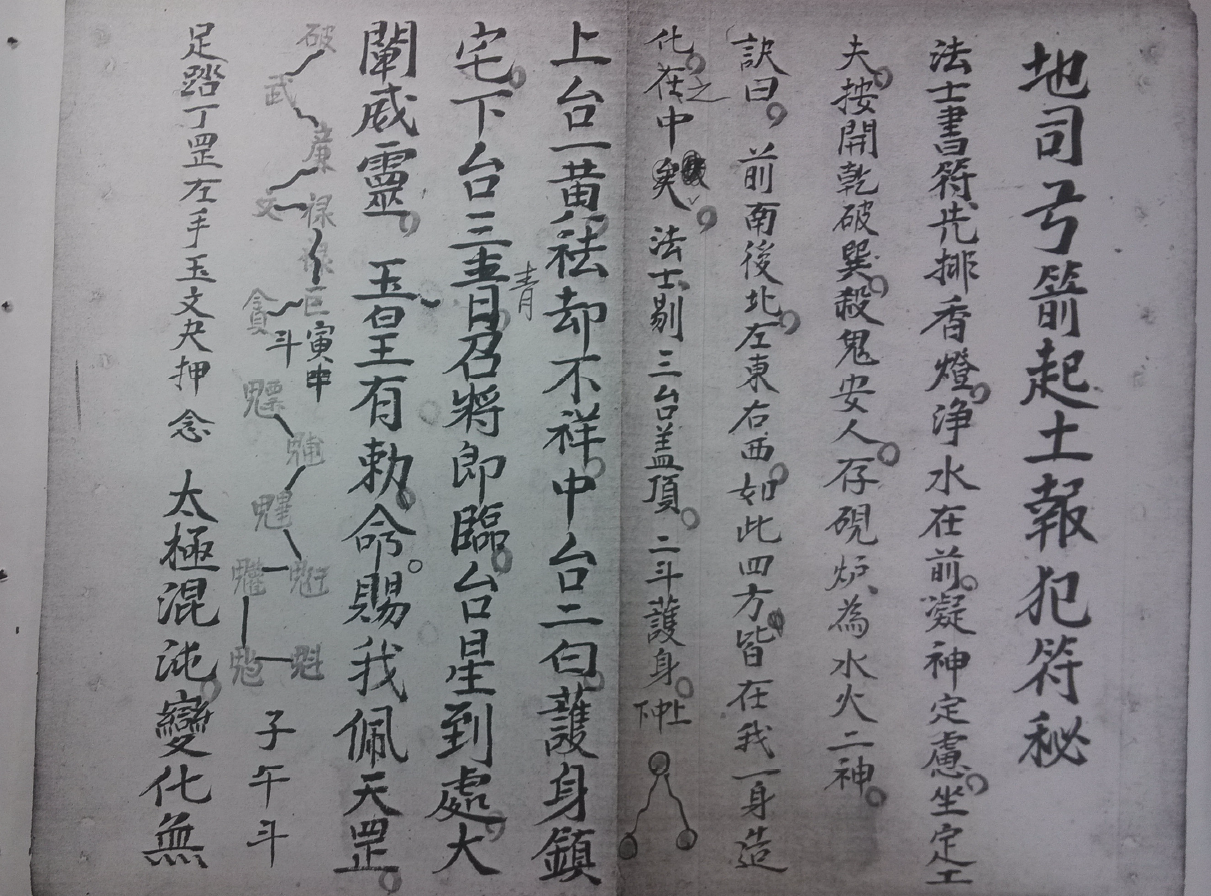 地司弓箭起土報犯符秘
法士書符先排香燈淨水在前凝神定慮坐定工
夫按開乾破巽殺鬼安人存硯炉為水火二神
訣曰前南後北左東右西如此四方皆在我一身造
化在之中矣法士剔三台盖頂二斗護身上中下
上台一黄祛却不祥中台二白護身鎮
宅下台三青青召將即臨台星到處大
闡威靈玉皇有勅命賜我佩天罡
破武廉文祿巨貪
寅申斗
魁
子午斗
足踏丁罡左手玉文夬押念太極混沌變化無